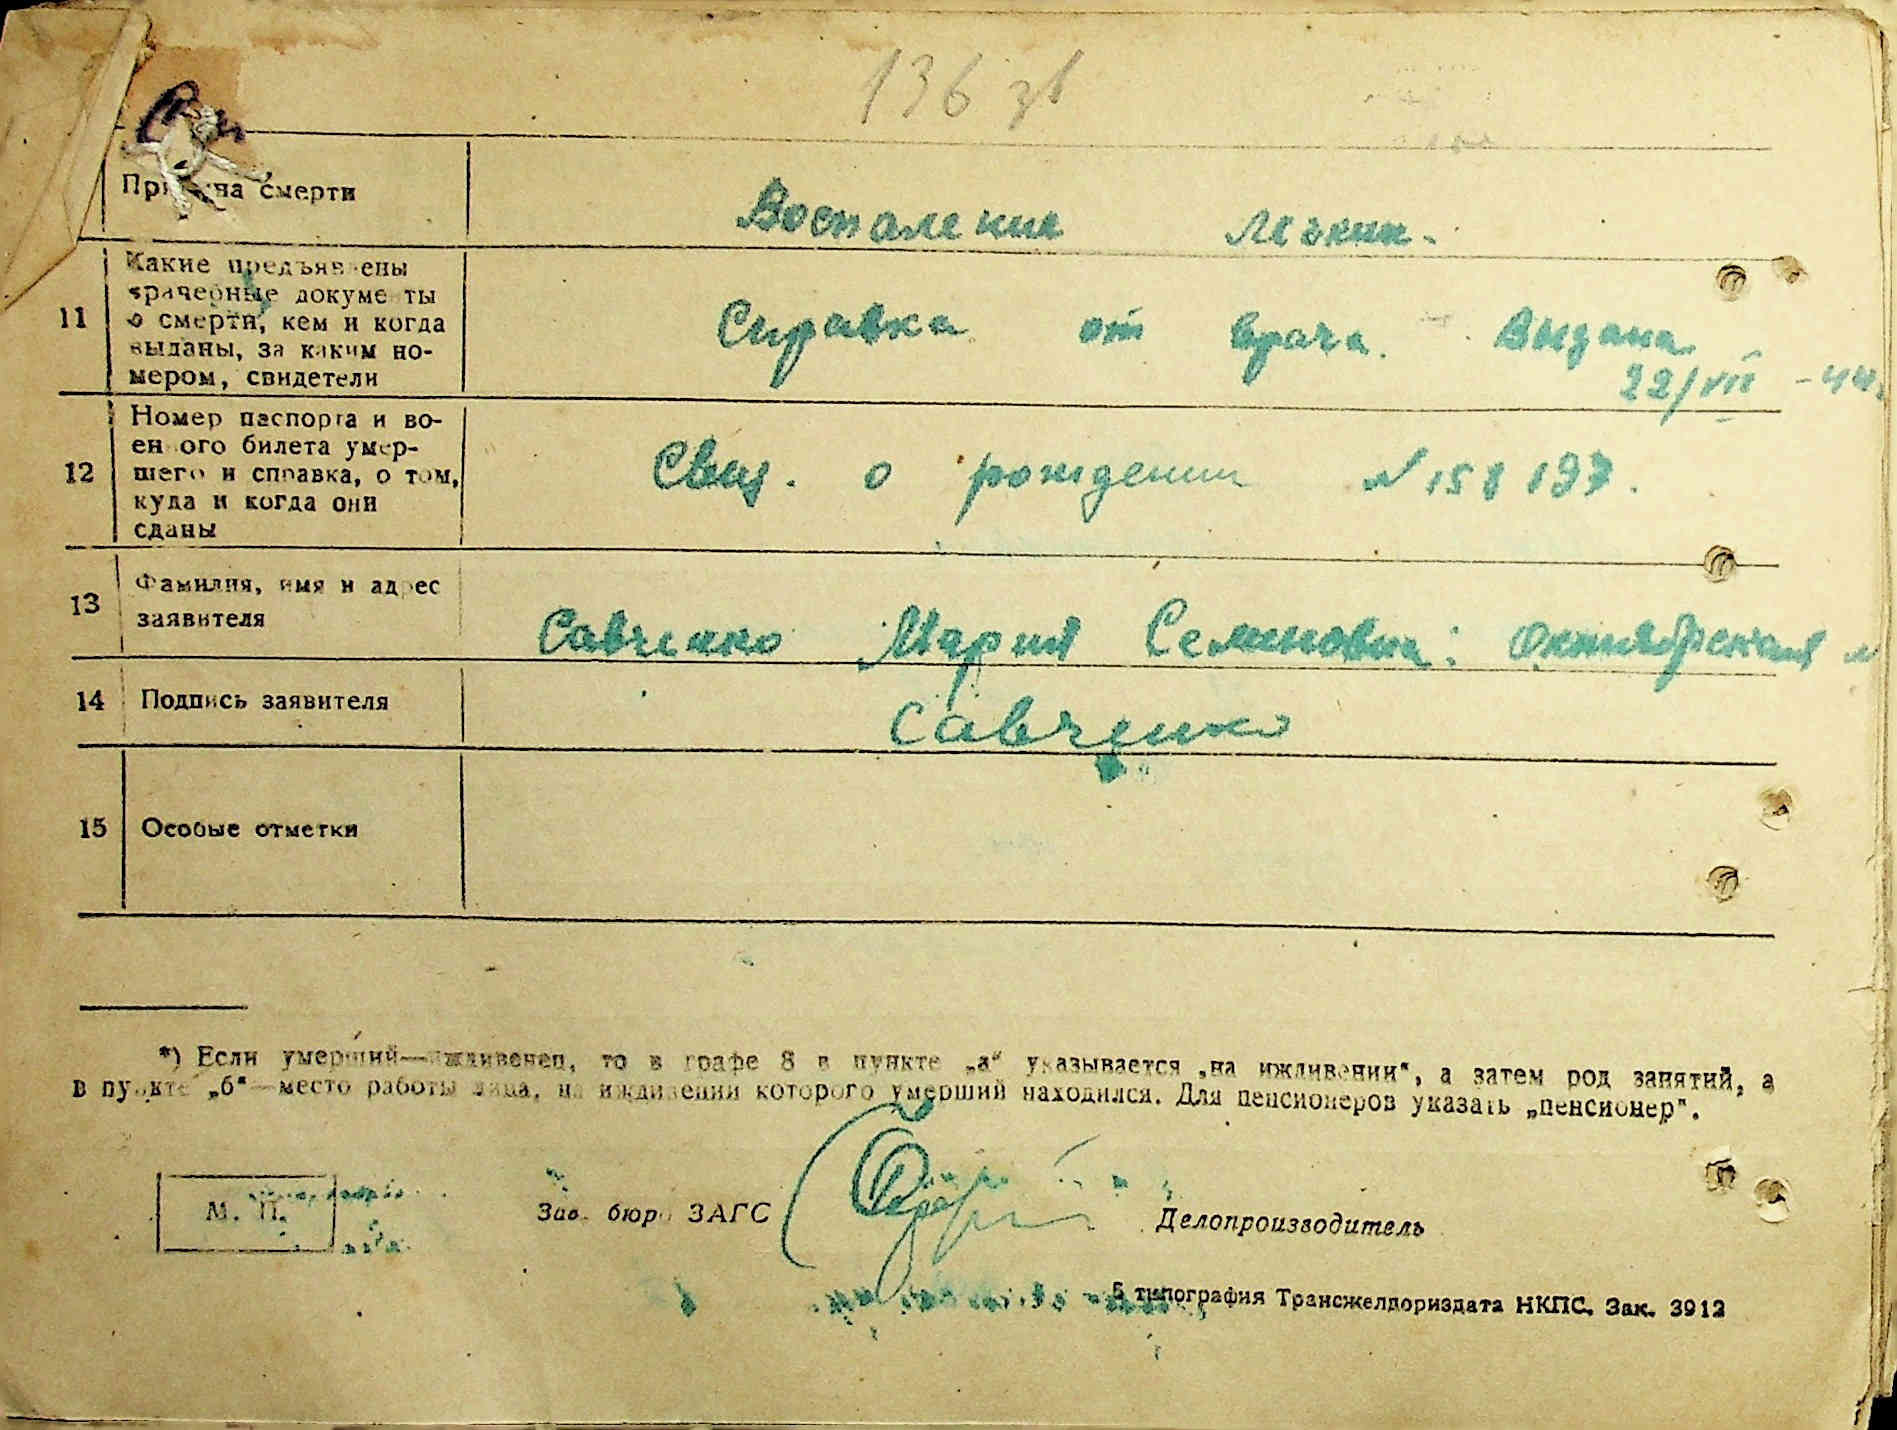 136 зв
Причина смерти
Воспаление легких.
11
Какие предъявлены
врачебные документы
о смерти, кем и когда
выданы, за каким но-
мером, свидетели
Справка от врача. Выдана
22/VII -44г.
12
Номер паспорта и во-
енного билета умер-
шего и справка, о том,
куда и когда они
сданы
Свид. о рождении №158197.
13
Фамилия, имя и адрес
заявителя
Савченко Мария Семеновна: Октябрьская
14
Подпись заявителя
Савченко
15
Особые отметки
*) Если умерший—иждивенец, то в графе 8 в пункте „а“ указывается „на иждивении“, а затем род занятий, а
в пункте „б“—место работы лица, на иждивении которого умерший находился. Для пенсионеров указать „пенсионер“.
М. П.
Зав. бюро ЗАГС
Делопроизводитель
5 типография Трансжелдориздата НКПС. Зак. 3912